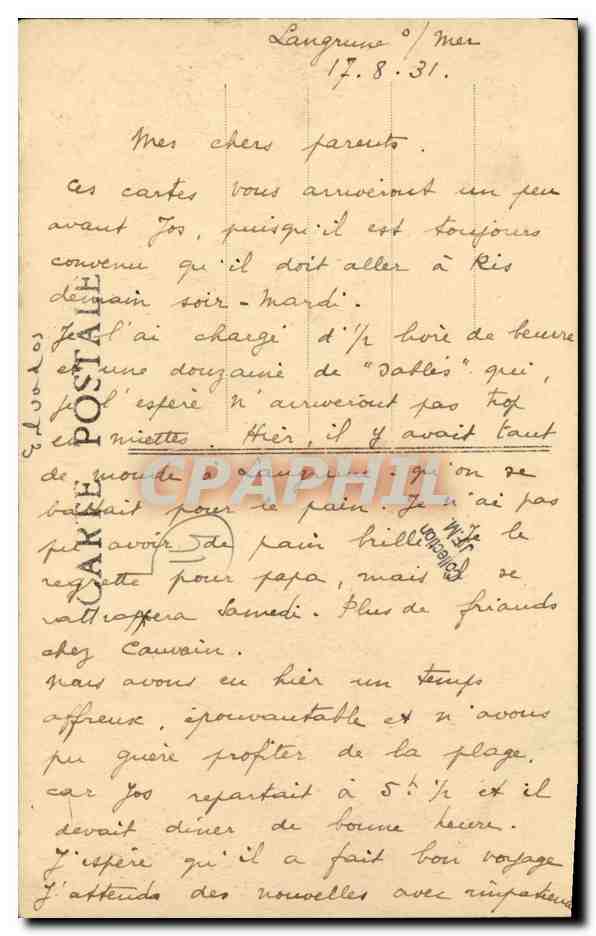 Langrune s/ Mer
17.8.31.
Mes chers parents.
Ces cartes vous arriveront un peu
avant Jos, puisqu'il est toujours
convenu qu'il doit aller à Ris
demain soir - Mardi.
Je l'ai chargé d'1/2 livre de beurre
et une douzaine de "Sablés" qui,
je l'espère n'arriveront pas trop
en miettes. Hier, il y avait tant
de monde à Langrune qu'on se
battait pour le pain. Je n'ai pas
pu avoir de pain brillé. Je le
regrette pour papa, mais il se
rattrappera Samedi. Plus de friands
chez Cauvain.
Nous avons eu hier un temps
affreux, épouvantable et n'avons
pu guère profiter de la plage,
car Jos repartait à 5h 1/2 et il
devait dîner de bonne heure.
J'espère qu'il a fait bon voyage
J'attends des nouvelles avec impatience
CARTE POSTALE
CPAPHIL
Collection
J.F.M.